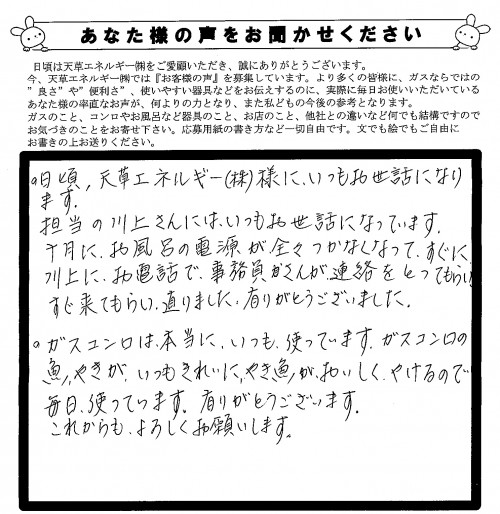 あなた様の声をお聞かせください
日頃は天草エネルギー㈱をご愛顧いただき、誠にありがとうございます。
今、天草エネルギー㈱では『お客様の声』を募集しています。より多くの皆様に、ガスならではの
”良さ”や”便利さ”、使いやすい器具などをお伝えするのに、実際に毎日お使いいただいている
あなた様の率直なお声が、何よりの力となり、また私どもの今後の参考となります。
ガスのこと、コンロやお風呂など器具のこと、お店のこと、他社との違いなど何でも結構ですので
お気づきのことをお寄せ下さい。応募用紙の書き方など一切自由です。文でも絵でもご自由に
お書きの上お送りください。
。日頃,天草エネルギー(株)様に、いつもお世話になり
ます。
担当の川上さんには、いつもお世話になっています。
十月に、お風呂の電源が全々つかなくなって、すぐに
川上に、お電話で、事務員がさんが、連絡をとってもらい
すぐ来てもらい、直りました。有りがとうございました。
。ガスコンロは、本当に、いつも、使っています。ガスコンロの
魚、やきが、いつもきれいに、やき魚が、おいしく、やけるので
毎日、使っています。有りがとうございます。
これからも、よろしくお願いします。